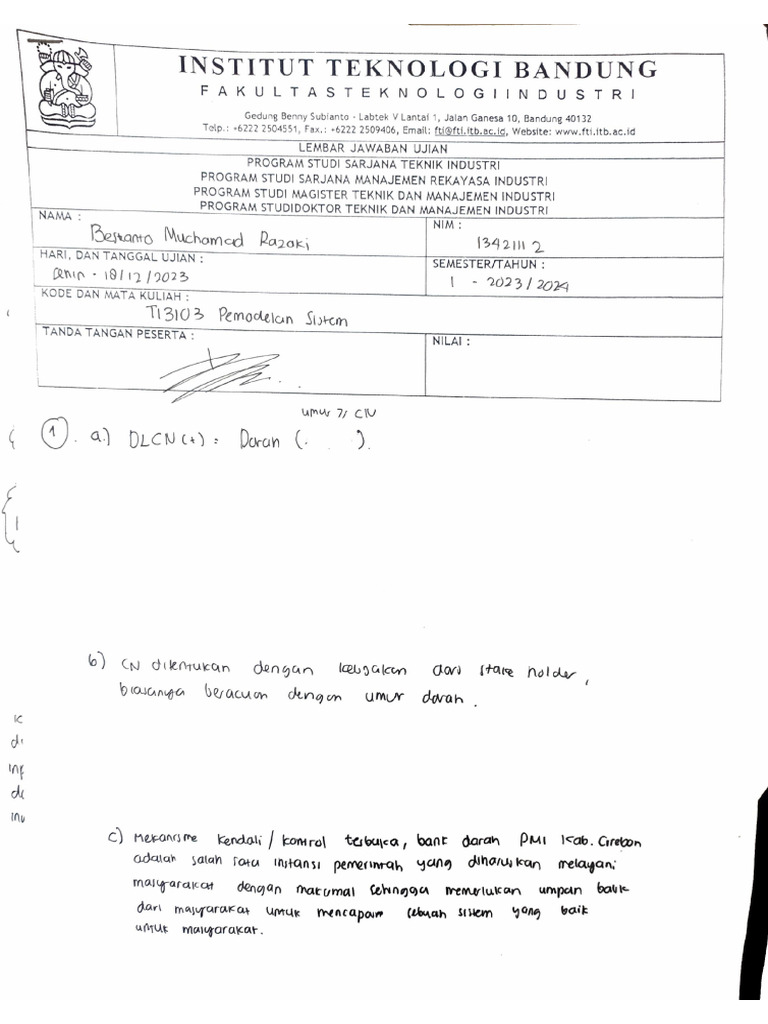 INSTITUT TEKNOLOGI BANDUNG
FAKULTAS TEKNOLOGI INDUSTRI
Gedung Benny Subianto - Labtek V Lantai 1, Jalan Ganesa 10, Bandung 40132
Telp.: +6222 2504551, Fax.: +6222 2509406, Email: fti@fti.itb.ac.id, Website: www.fti.itb.ac.id
LEMBAR JAWABAN UJIAN
PROGRAM STUDI SARJANA TEKNIK INDUSTRI
PROGRAM STUDI SARJANA MANAJEMEN REKAYASA INDUSTRI
PROGRAM STUDI MAGISTER TEKNIK DAN MANAJEMEN INDUSTRI
PROGRAM STUDIDOKTOR TEKNIK DAN MANAJEMEN INDUSTRI
NAMA :
Bestanto Muchamad Razaki
NIM :
13421112
HARI, DAN TANGGAL UJIAN :
Senin - 18/12/2023
SEMESTER/TAHUN :
1 - 2023/2024
KODE DAN MATA KULIAH :
TI3103 Pemodelan Sistem
TANDA TANGAN PESERTA :
NILAI :
umur 7/
1. a.) DLCN(t) = Darah ( ).
b) CN ditentukan dengan kebijakan dari stake holder,
biasanya beracuan dengan umur darah.
c) Mekanisme kendali/kontrol terbuka, bank darah PMI Kab. Cirebon
adalah salah satu instansi pemerintah yang diharuskan melayani
masyarakat dengan maksimal sehingga memerlukan umpan balik
dari masyarakat untuk mencapai sebuah sistem yang baik
untuk masyarakat.